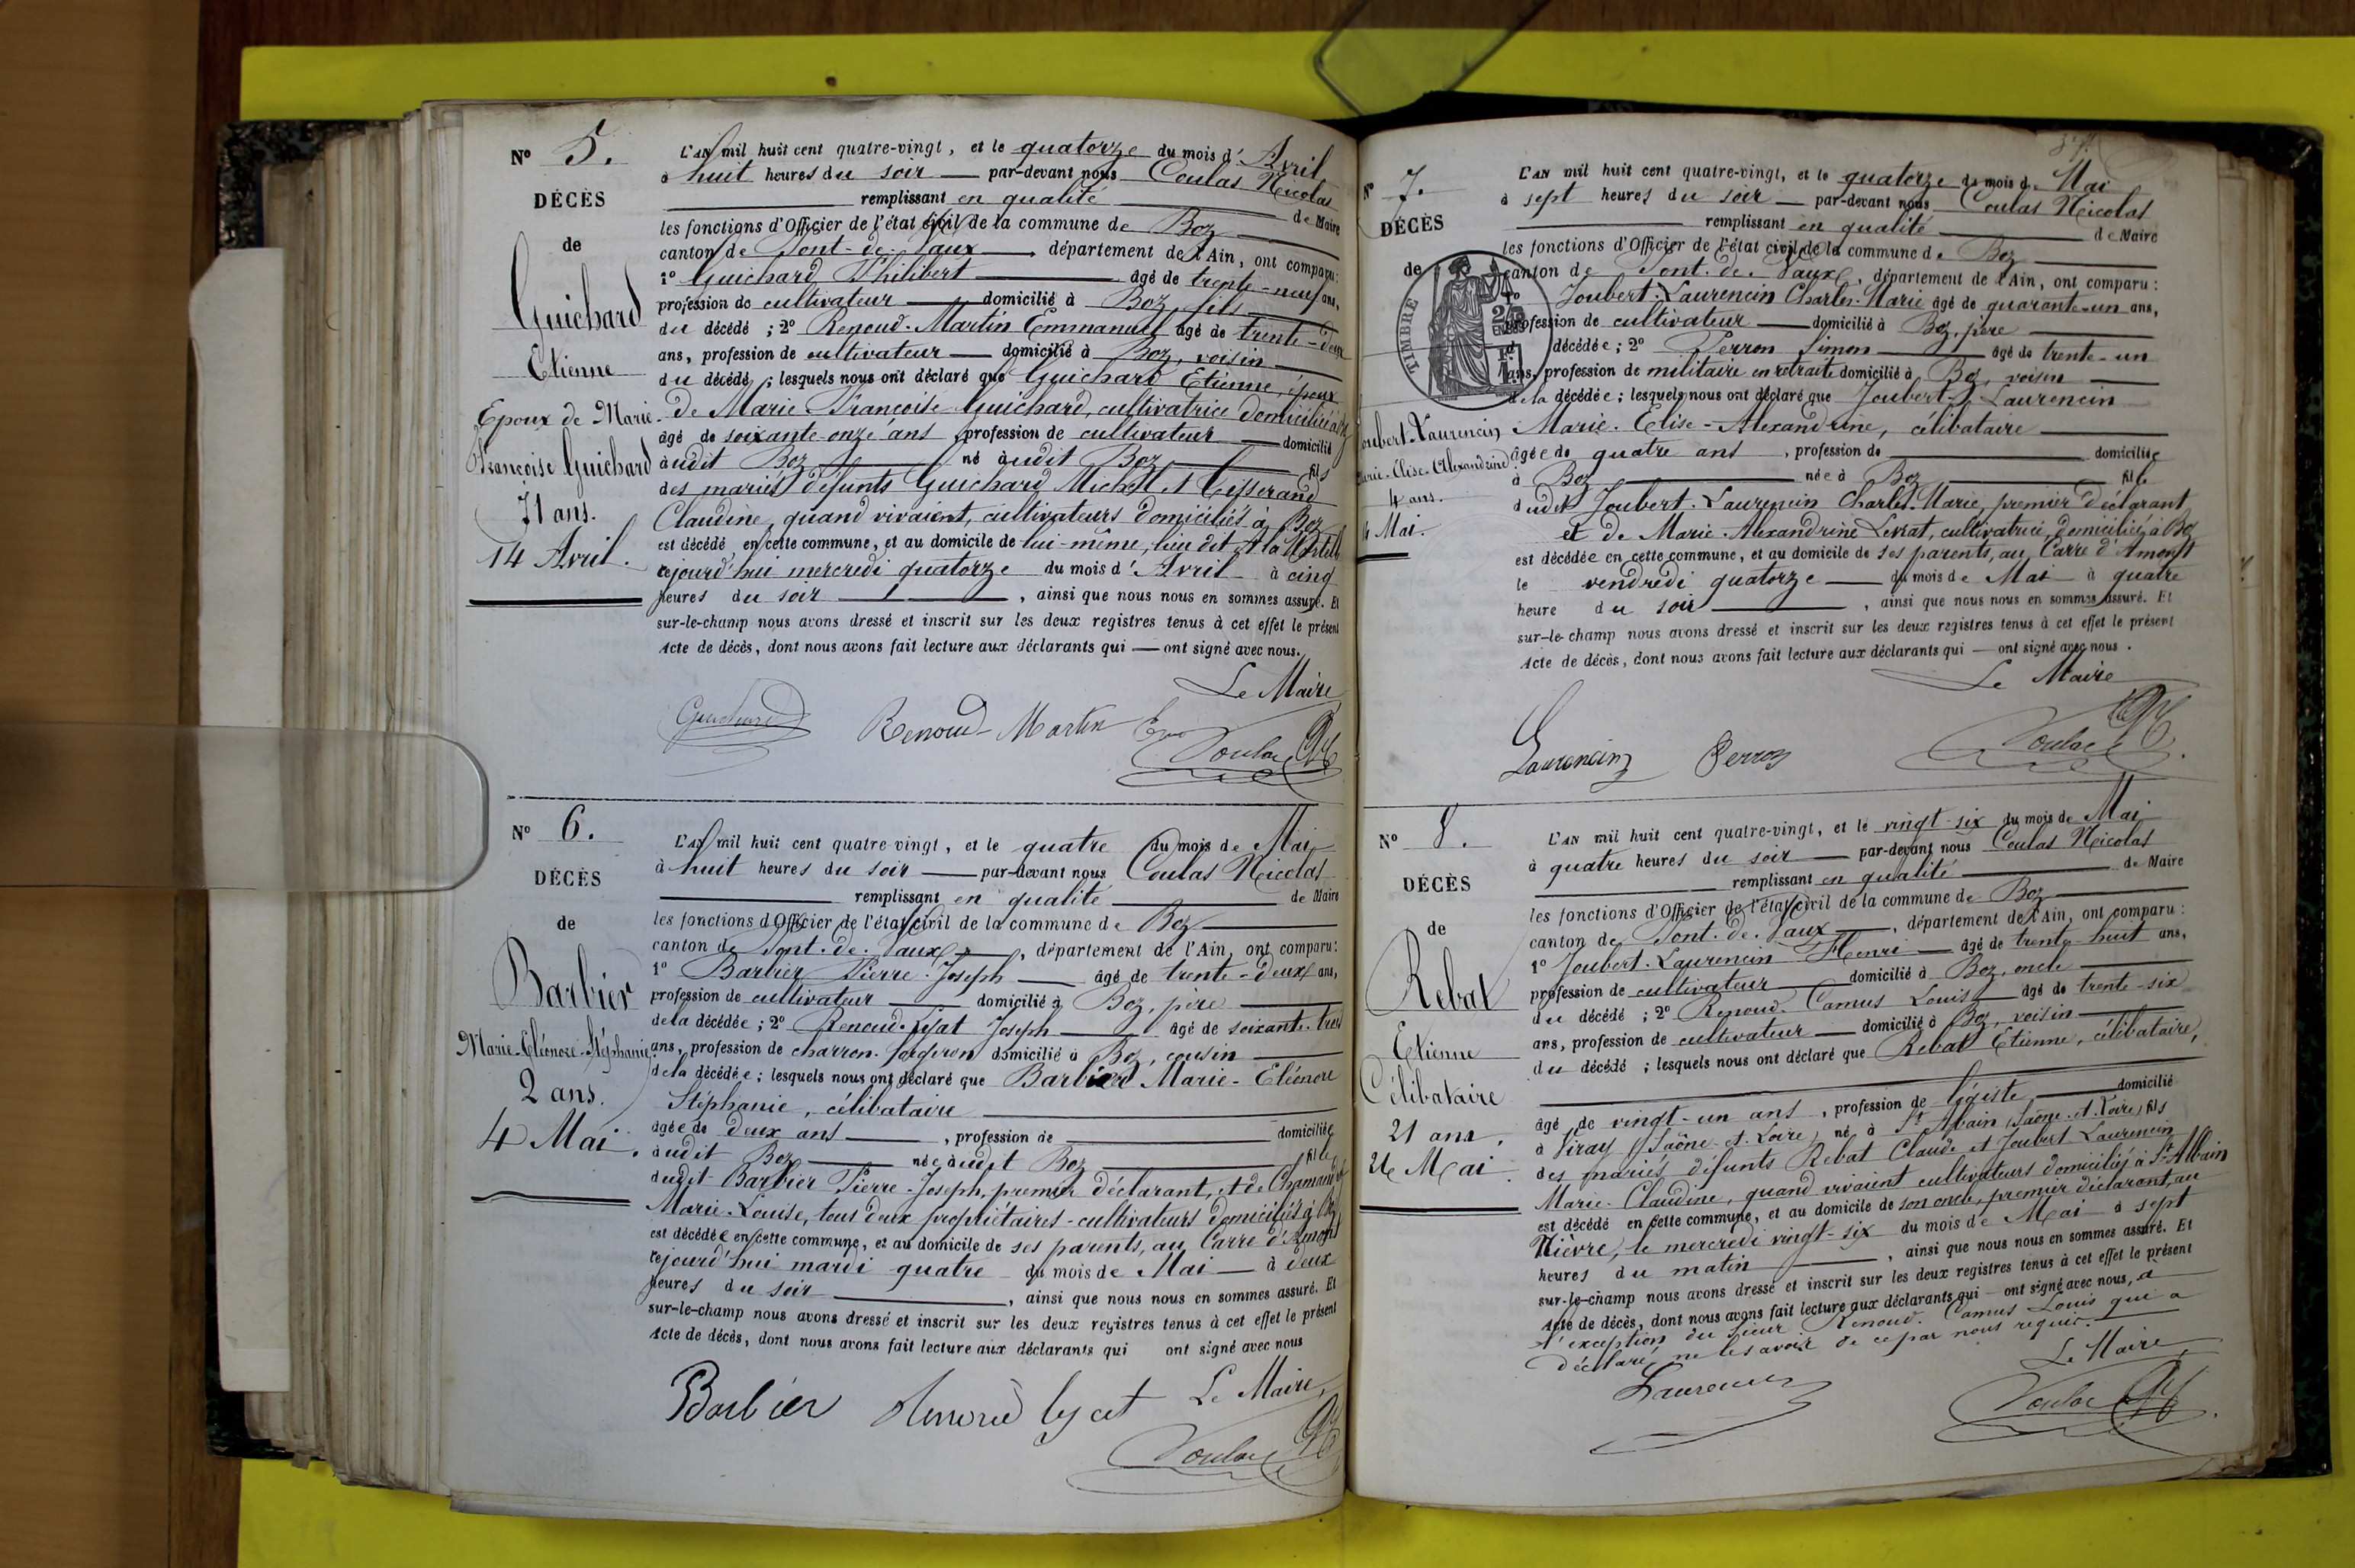 N° 5.
DÉCÈS
de
Guichard
Etienne
Epoux de Marie
Françoise Guichard
71 ans.
14 Avril.
L'AN mil huit cent quatre-vingt, et le quatorze du mois d'Avril
à huit heures du soir par-devant nous Coulas Nicolas
remplissant en qualité de Maire
les fonctions d'Officier de l'état civil de la commune de Boz
canton de Pont-de-Vaux, département de l'Ain, ont comparu:
1° Guichard Philibert âgé de trente-neuf ans,
profession de cultivateur domicilié à Boz, fils
du décédé; 2° Renoud-Martin Emmanuel âgé de trente-deux
ans, profession de cultivateur domicilié à Boz, voisin
du décédé; lesquels nous ont déclaré que Guichard Etienne, époux
de Marie-Françoise Guichard, cultivatrice domiciliée à Boz
âgé de soixante-onze ans profession de cultivateur domicilié
audit Boz né audit Boz fils
des mariés défunts Guichard Michel et Tisserand
Claudine, quand vivaient, cultivateurs domiciliés à Boz
est décédé en cette commune, et au domicile de lui-même, lieu dit à la
cejourd'hui mercredi quatorze du mois d'Avril à cinq
heures du soir, ainsi que nous nous en sommes assuré. Et
sur-le-champ nous avons dressé et inscrit sur les deux registres tenus à cet effet le présent
Acte de décès, dont nous avons fait lecture aux déclarants qui ont signé avec nous.
Le Maire
Guichard Renoud-Martin Coulas
N° 6.
DÉCÈS
de
Barbier
Marie-Eléonore-Stéphanie
2 ans.
4 Mai.
L'AN mil huit cent quatre-vingt, et le quatre du mois de Mai
à huit heures du soir par-devant nous Coulas Nicolas
remplissant en qualité de Maire
les fonctions d'Officier de l'état civil de la commune de Boz
canton de Pont-de-Vaux, département de l'Ain, ont comparu:
1° Barbier Pierre-Joseph âgé de trente-deux ans,
profession de cultivateur domicilié à Boz, père
de la décédée; 2° Renoud-Lyat Joseph âgé de soixante-trois
ans, profession de charron-forgeron domicilié à Boz, cousin
de la décédée; lesquels nous ont déclaré que Barbier Marie-Eléonore
Stéphanie, célibataire
âgée de deux ans, profession de domiciliée
audit Boz née audit Boz fille
dudit Barbier Pierre-Joseph, premier déclarant, et de
Marie-Louise, tous deux propriétaires-cultivateurs domiciliés à Boz
est décédée en cette commune, et au domicile de ses parents, au Carre d'Amont
cejourd'hui mardi quatre du mois de Mai à deux
heures du soir, ainsi que nous nous en sommes assuré. Et
sur-le-champ nous avons dressé et inscrit sur les deux registres tenus à cet effet le présent
Acte de décès, dont nous avons fait lecture aux déclarants qui ont signé avec nous
Barbier Renoud lyat Le Maire,
Coulas
N° 7.
DÉCÈS
de
TIMBRE
Joubert-Laurencin
Marie-Elise-Alexandrine
4 ans.
14 Mai.
L'AN mil huit cent quatre-vingt, et le quatorze du mois de Mai
à sept heures du soir par-devant nous Coulas Nicolas
remplissant en qualité de Maire
les fonctions d'Officier de l'état civil de la commune de Boz
canton de Pont-de-Vaux, département de l'Ain, ont comparu:
1° Joubert-Laurencin Charles-Marie âgé de quarante-un ans,
profession de cultivateur domicilié à Boz, père
décédée; 2° Perron Simon âgé de trente-un
ans, profession de militaire en retraite domicilié à Boz, voisin
de la décédée; lesquels nous ont déclaré que Joubert-Laurencin
Marie-Elise-Alexandrine, célibataire
âgée de quatre ans, profession de domiciliée
à Boz née à Boz fille
dudit Joubert-Laurencin Charles-Marie, premier déclarant
et de Marie-Alexandrine Levrat, cultivatrice, domiciliée à Boz
est décédée en cette commune, et au domicile de ses parents, au Carre d'Amont
le vendredi quatorze du mois de Mai à quatre
heure du soir, ainsi que nous nous en sommes assuré. Et
sur-le-champ nous avons dressé et inscrit sur les deux registres tenus à cet effet le présent
Acte de décès, dont nous avons fait lecture aux déclarants qui ont signé avec nous.
Le Maire
Laurencin Perron Coulas
N° 8.
DÉCÈS
de
Rebat
Etienne
Célibataire
21 ans.
26 Mai.
L'AN mil huit cent quatre-vingt, et le vingt-six du mois de Mai
à quatre heures du soir par-devant nous Coulas Nicolas
remplissant en qualité de Maire
les fonctions d'Officier de l'état civil de la commune de Boz
canton de Pont-de-Vaux, département de l'Ain, ont comparu:
1° Joubert-Laurencin Henri âgé de trente-huit ans,
profession de cultivateur domicilié à Boz, oncle
du décédé; 2° Renoud-Camus Louis âgé de trente-six
ans, profession de cultivateur domicilié à Boz, voisin
du décédé; lesquels nous ont déclaré que Rebat Etienne, célibataire,
âgé de vingt-un ans, profession de légiste domicilié
à Viray (Saône-et-Loire) né à St Albain (Saône-et-Loire) fils
des mariés défunts Rebat Claude et Joubert Laurencin
Marie-Claudine, quand vivaient cultivateurs domiciliés à St Albain
est décédé en cette commune, et au domicile de son oncle, premier déclarant, au
Nièvre, le mercredi vingt-six du mois de Mai à sept
heures du matin, ainsi que nous nous en sommes assuré. Et
sur-le-champ nous avons dressé et inscrit sur les deux registres tenus à cet effet le présent
Acte de décès, dont nous avons fait lecture aux déclarants qui ont signé avec nous, à
l'exception du sieur Renoud-Camus Louis qui a
déclaré ne le savoir de ce par nous requis.
Le Maire,
Laurencin Coulas